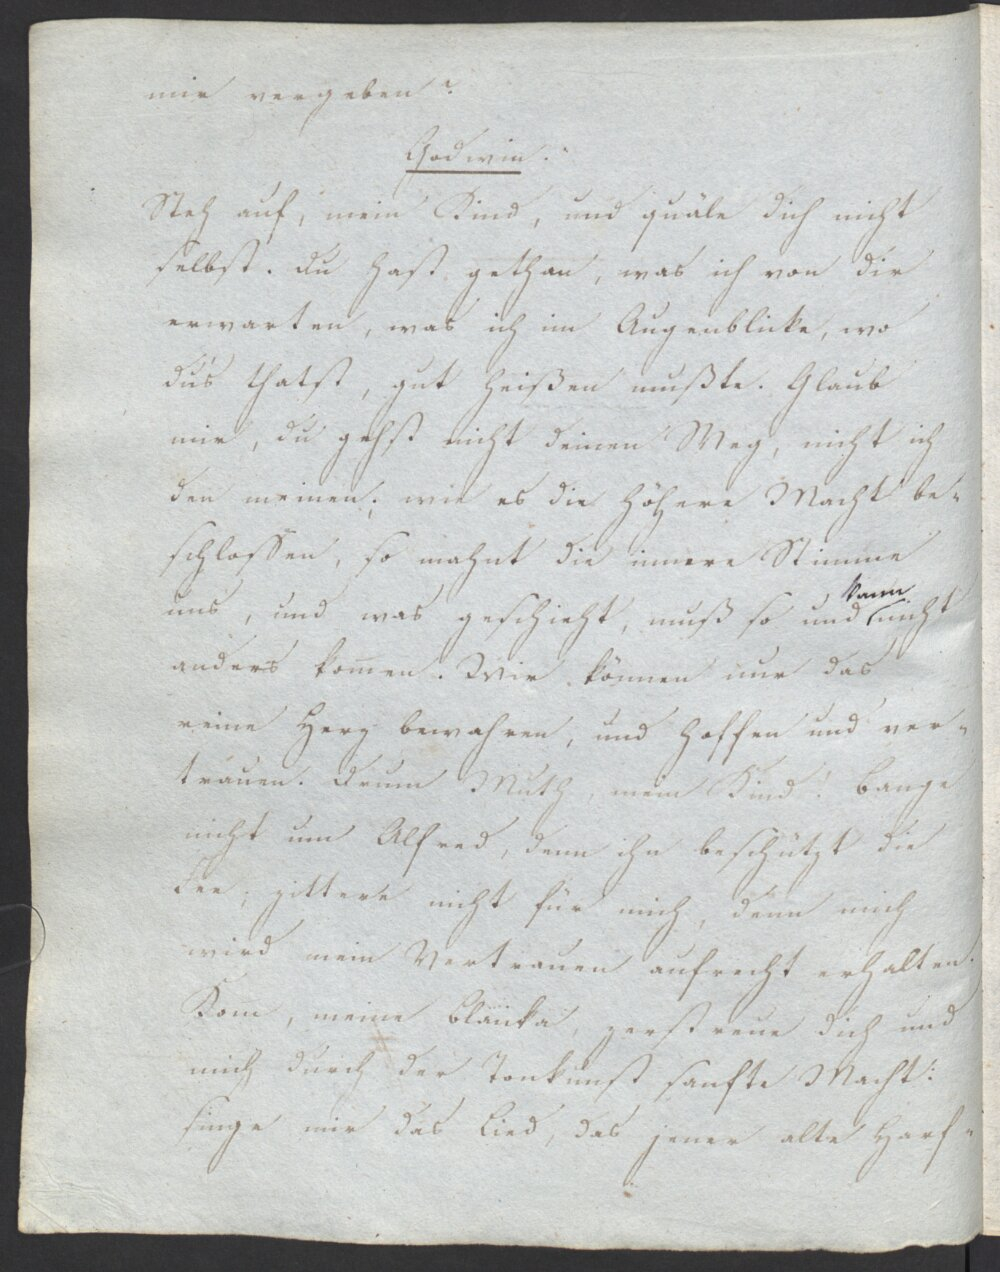 mir vergeben?
Godwin.
Steh auf, mein Kind, und quäle dich nicht
selbst. Du hast gethan, was ich von dir
erwarten, was ich im Augenblicke, wo
dus thatst, gut heißen mußte. Glaub
mir, du gehst nicht deinen Weg, nicht ich
den meinen; wie es die höhere Macht be-
schlossen, so mahnt die innere Stimme
kann
uns, und was geschieht, muß so und nicht
anders kom̅en. Wir können nur das
reine Herz bewahren, und hoffen und ver-
trauen. Drum Muth, mein Kind! Bange
nicht um Alfred, denn ihn beschützt die
Fee; zittere nicht für mich, denn mich
wird mein Vertrauen aufrecht erhalten.
Kom̅, meine Blanka, zerstreue dich und
mich durch der Tonkunst sanfte Macht:
singe mir das Lied, das jener alte Harf-